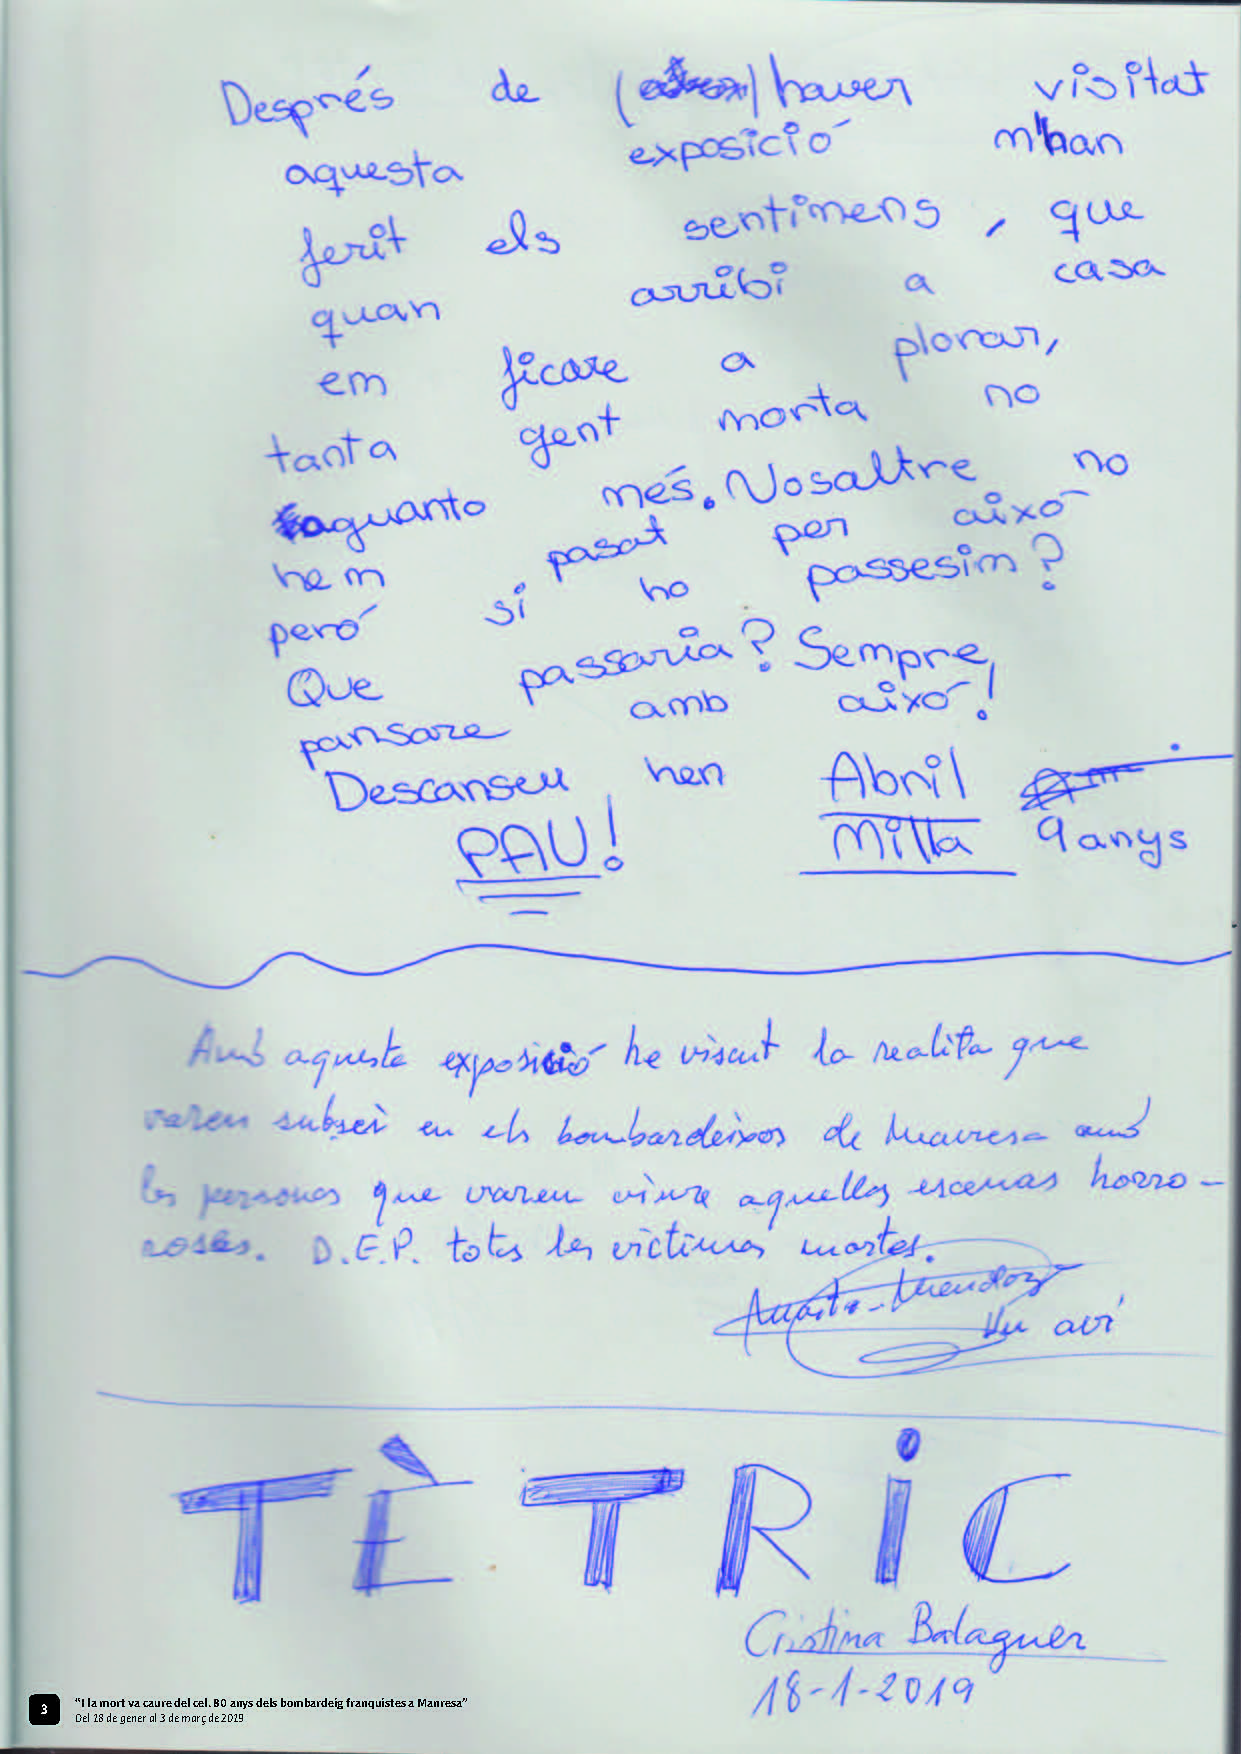 Després de ( ) haver visitat
aquesta exposició m'han
ferit els sentimens, que
quan arribi a casa
em ficare a plorar,
tanta gent morta no
aguanto més. Nosaltre no
hem pasat per aixó
peró si ho passesim?
Que passaria? Sempre
pansare amb aixó!
Descanseu hen
PAU!
Abril
Milla 9 anys
Amb aquesta exposició he viscut la realita que
varen subseir en els bombardeixos de Manresa amb
les persones que varen viure aquelles escenas horro-
roses. D.E.P. totes les victimas mortes.
Mendoz
Un avi
TÈTRIC
Cristina Balaguer
18-1-2019
3
"I la mort va caure del cel. 80 anys dels bombardeig franquistes a Manresa"
Del 18 de gener al 3 de març de 2019